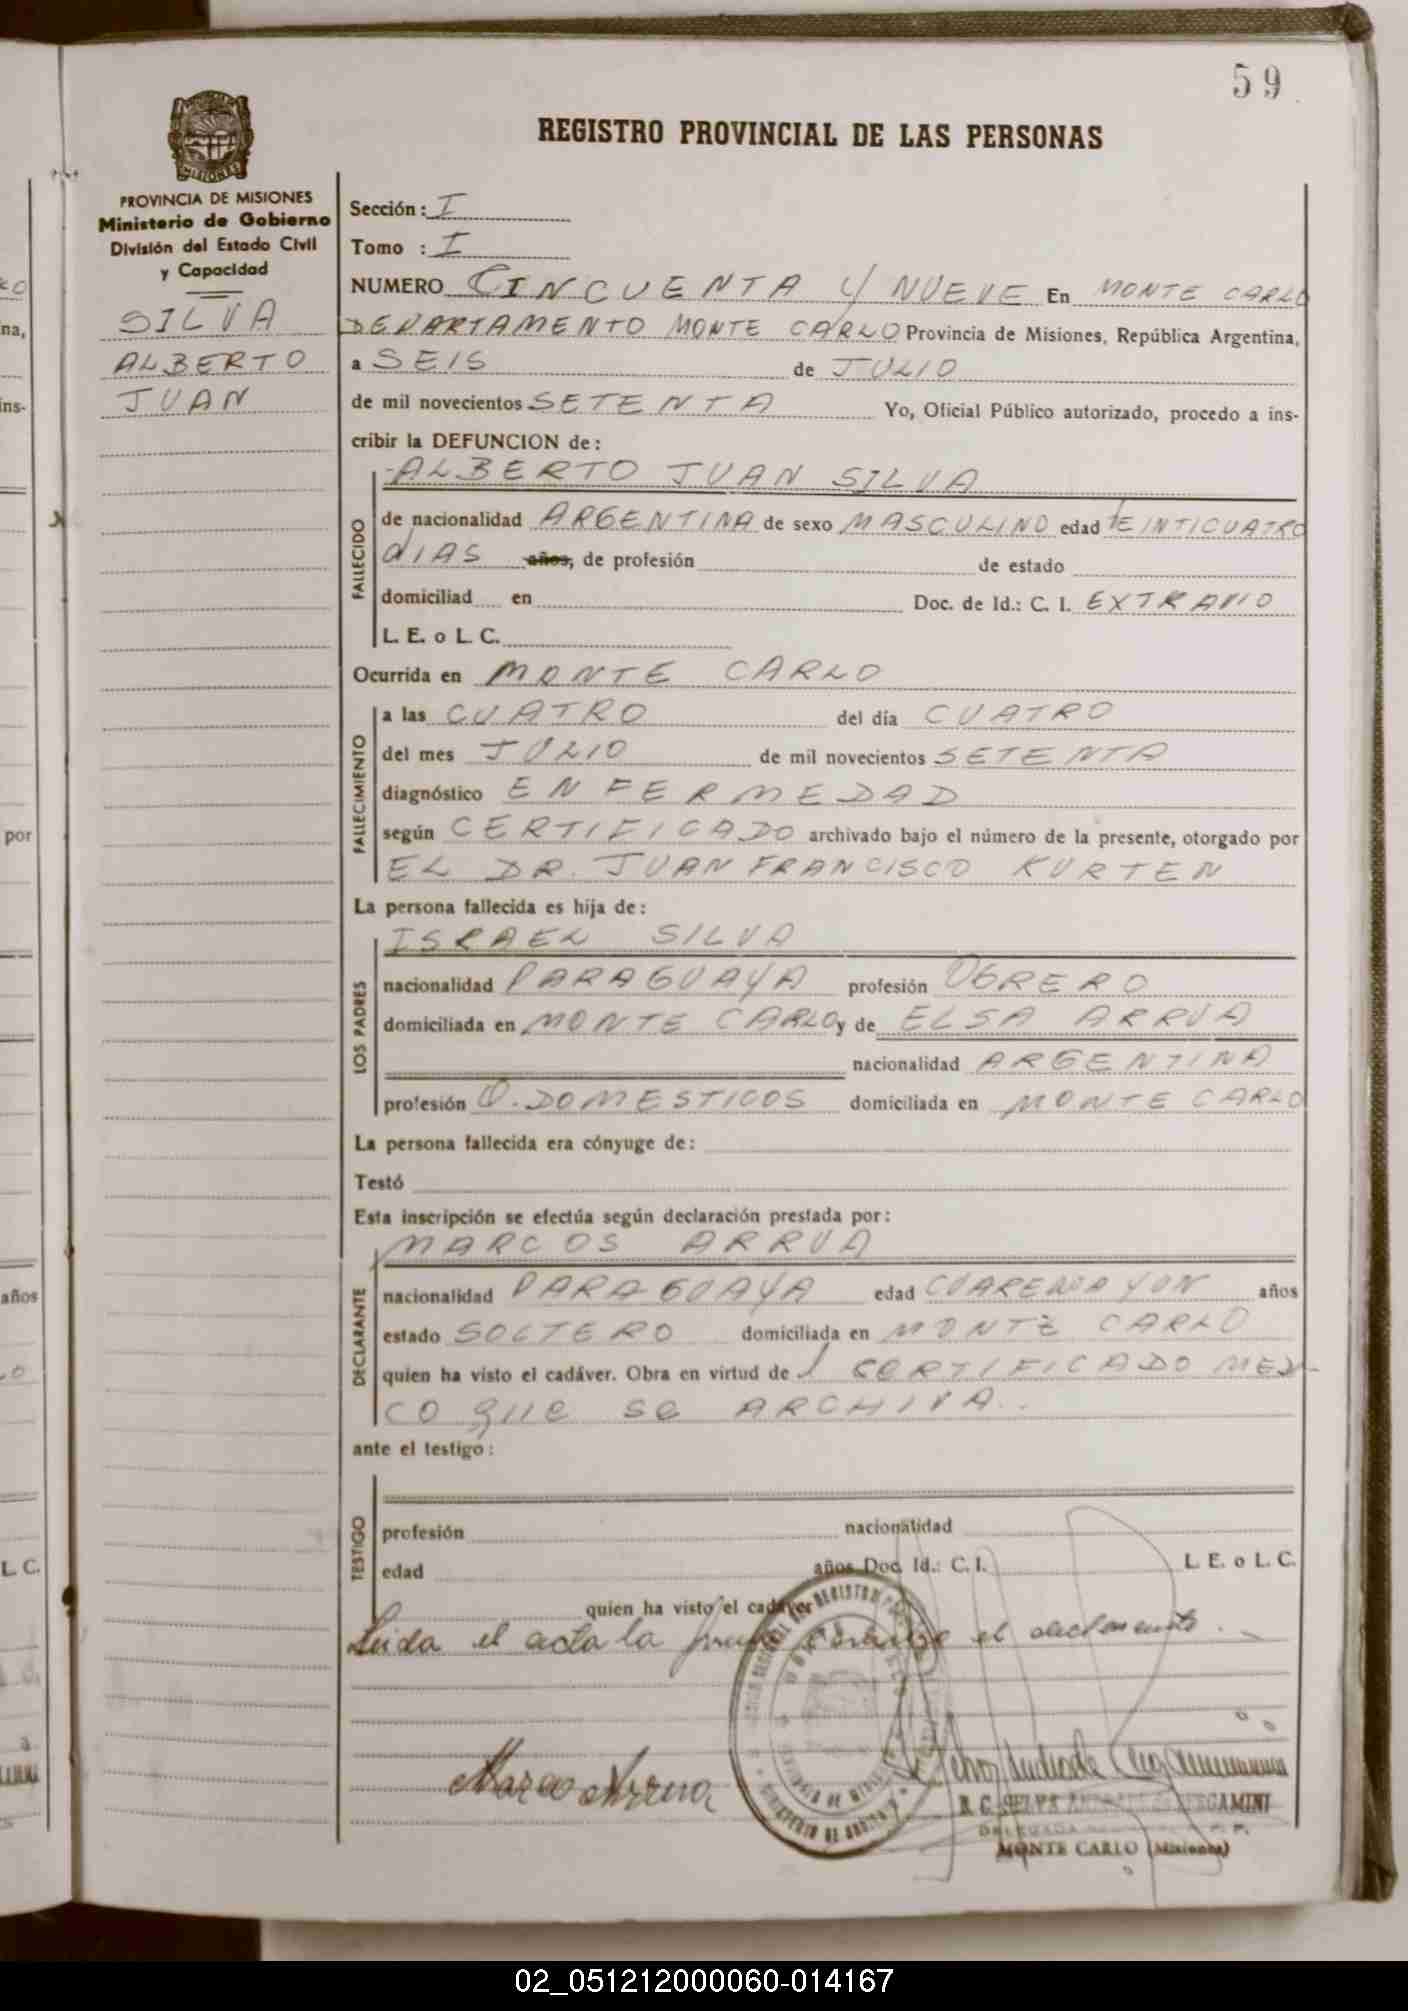 59
REGISTRO PROVINCIAL DE LAS PERSONAS
PROVINCIA DE MISIONES
Ministerio de Gobierno
División del Estado Civil
y Capacidad
SILVA
ALBERTO
JUAN
Sección: I
Tomo : I
NUMERO CINCUENTA Y NUEVE En MONTE CARLO
DEPARTAMENTO MONTE CARLO Provincia de Misiones, República Argentina,
a SEIS de JULIO
de mil novecientos SETENTA Yo, Oficial Público autorizado, procedo a ins-
cribir la DEFUNCION de:
ALBERTO JUAN SILVA
FALLECIDO
de nacionalidad ARGENTINA de sexo MASCULINO edad VEINTICUATRO
DIAS años, de profesión de estado
domiciliad en Doc. de Id.: C. I. EXTRAVIO
L. E. o L. C.
Ocurrida en MONTE CARLO
FALLECIMIENTO
a las CUATRO del día CUATRO
del mes JULIO de mil novecientos SETENTA
diagnóstico ENFERMEDAD
según CERTIFICADO archivado bajo el número de la presente, otorgado por
EL DR. JUAN FRANCISCO KURTEN
La persona fallecida es hija de:
LOS PADRES
ISRAEL SILVA
nacionalidad PARAGUAYA profesión OBRERO
domiciliada en MONTE CARLO y de ELSA ARRUA
nacionalidad ARGENTINA
profesión Q. DOMESTICOS domiciliada en MONTE CARLO
La persona fallecida era cónyuge de:
Testó
Esta inscripción se efectúa según declaración prestada por:
DECLARANTE
MARCOS ARRUA
nacionalidad PARAGUAYA edad CUARENTA Y UN años
estado SOLTERO domiciliada en MONTE CARLO
quien ha visto el cadáver. Obra en virtud de 1 CERTIFICADO MEDI-
CO QUE SE ARCHIVA.
ante el testigo:
TESTIGO
profesión nacionalidad
edad años Doc. Id.: C. I. L. E. o L. C.
quien ha visto el cadáver
Leida el acta la firma el declarante.
Marcos Arrua
MONTE CARLO (Misiones)
por
años
L. C.
02_051212000060-014167